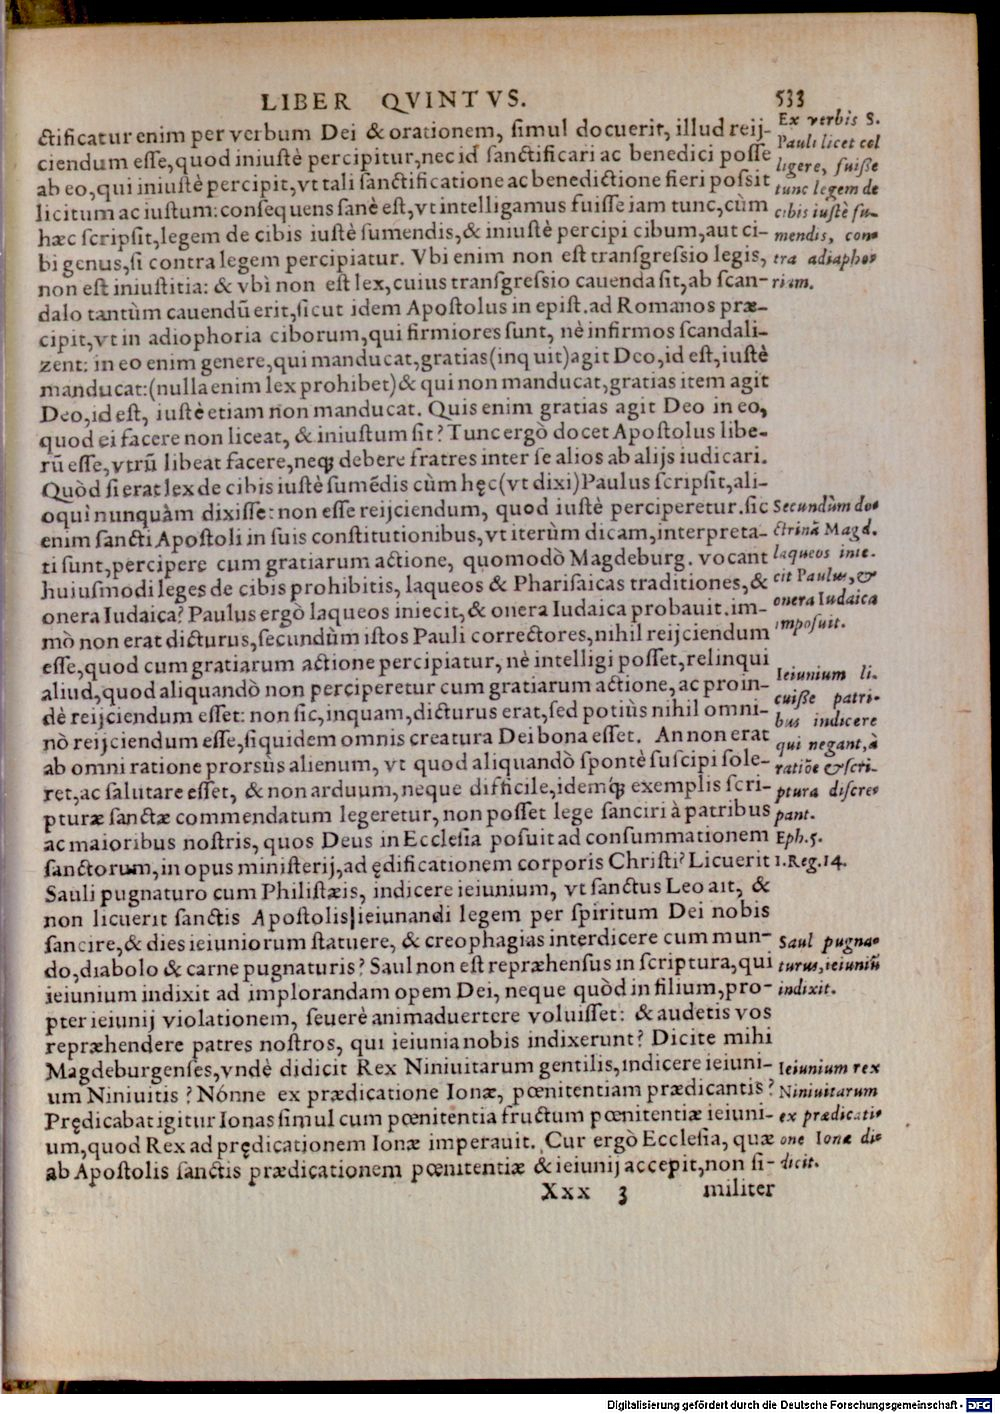 LIBER QVINTVS. 533
ctificatur enim per verbum Dei & orationem, simul docuerit, illud reij-
ciendum esse, quod iniustè percipitur, nec id sanctificari ac benedici posse
ab eo, qui iniustè percipit, vt tali sanctificatione ac benedictione fieri possit
licitum ac iustum: consequens sanè est, vt intelligamus fuisse iam tunc, cùm
hæc scripsit, legem de cibis iustè sumendis, & iniustè percipi cibum, aut ci-
bi genus, si contra legem percipiatur. Vbi enim non est transgressio legis,
non est iniustitia: & vbi non est lex, cuius transgressio cauenda sit, ab scan-
dalo tantùm cauendũ erit, sicut idem Apostolus in epist. ad Romanos præ-
cipit, vt in adiophoria ciborum, qui firmiores sunt, nè infirmos scandali-
zent: in eo enim genere, qui manducat, gratias (inquit) agit Deo, id est, iustè
manducat: (nulla enim lex prohibet) & qui non manducat, gratias item agit
Deo, id est, iustè etiam non manducat. Quis enim gratias agit Deo in eo,
quod ei facere non liceat, & iniustum sit? Tunc ergò docet Apostolus libe-
rũ esse, vtrũ libeat facere, neq; debere fratres inter se alios ab alijs iudicari.
Quòd si erat lex de cibis iustè sumẽdis cùm hęc (vt dixi) Paulus scripsit, ali-
oquì nunquàm dixisse: non esse reijciendum, quod iustè perciperetur. sic
enim sancti Apostoli in suis constitutionibus, vt iterùm dicam, interpreta-
ti sunt, percipere cum gratiarum actione, quomodò Magdeburg. vocant
huiusmodi leges de cibis prohibitis, laqueos & Pharisaicas traditiones, &
onera Iudaica? Paulus ergò laqueos iniecit, & onera Iudaica probauit. im-
mò non erat dicturus, secundùm istos Pauli correctores, nihil reijciendum
esse, quod cum gratiarum actione percipiatur, nè intelligi posset, relinqui
aliud, quod aliquandò non perciperetur cum gratiarum actione, ac proin-
dè reijciendum esset: non sic, inquam, dicturus erat, sed potiùs nihil omni-
nò reijciendum esse, siquidem omnis creatura Dei bona esset. An non erat
ab omni ratione prorsùs alienum, vt quod aliquandò spontè suscipi sole-
ret, ac salutare esset, & non arduum, neque difficile, idemq́; exemplis scri-
pturæ sanctæ commendatum legeretur, non posset lege sanciri à patribus
ac maioribus nostris, quos Deus in Ecclesia posuit ad consummationem
sanctorum, in opus ministerij, ad ędificationem corporis Christi? Licuerit
Sauli pugnaturo cum Philistæis, indicere ieiunium, vt sanctus Leo ait, &
non licuerit sanctis Apostolis ieiunandi legem per spiritum Dei nobis
sancire, & dies ieiuniorum statuere, & creophagias interdicere cum mun-
do, diabolo & carne pugnaturis? Saul non est repræhensus in scriptura, qui
ieiunium indixit ad implorandam opem Dei, neque quòd in filium, pro-
pter ieiunij violationem, seuerè animaduertere voluisset: & audetis vos
repræhendere patres nostros, qui ieiunia nobis indixerunt? Dicite mihi
Magdeburgenses, vndè didicit Rex Niniuitarum gentilis, indicere ieiuni-
um Niniuitis? Nónne ex prædicatione Ionæ, pœnitentiam prædicantis?
Prędicabat igitur Ionas simul cum pœnitentia fructum pœnitentiæ ieiuni-
um, quod Rex ad prędicationem Ionæ imperauit. Cur ergò Ecclesia, quæ
ab Apostolis sanctis prædicationem pœnitentiæ & ieiunij accepit, non si-
Xxx 3 militer
Ex verbis S.
Pauli licet col
ligere, fuisse
tunc legem de
cibis iustè su-
mendis, con-
tra adiapho-
rium.
Secundùm do-
ctrinã Magd.
laqueos inie-
cit Paulus, &
onera Iudaica
imposuit.
Ieiunium li-
cuisse patri-
bus indicere
qui negant, à
ratiõe & scri-
ptura discre-
pant.
Eph. 5.
1. Reg. 14.
Saul pugna-
turus, ieiuniũ
indixit.
Ieiunium rex
Niniuitarum
ex prædicati-
one Ionæ di-
dicit.
Digitalisierung gefördert durch die Deutsche Forschungsgemeinschaft - DFG